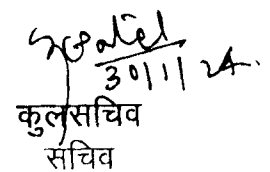 30/11/24.
कुलसचिव
सचिव